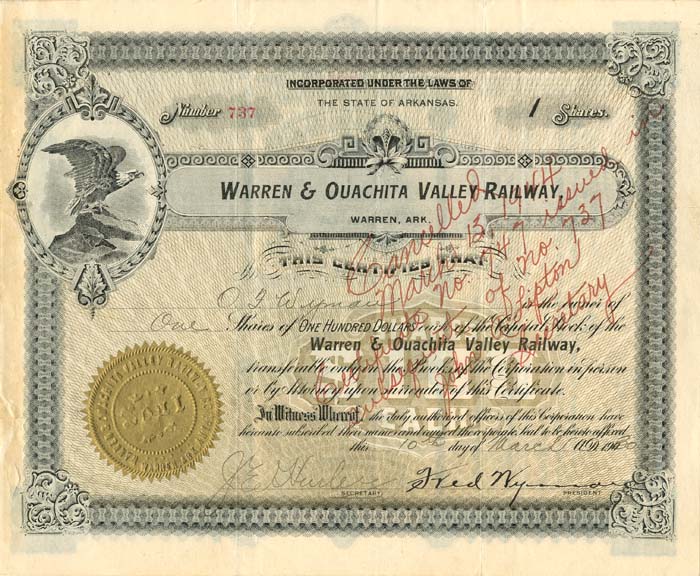 INCORPORATED UNDER THE LAWS OF
THE STATE OF ARKANSAS.
Number 737
1 Shares.
WARREN & OUACHITA VALLEY RAILWAY,
WARREN, ARK.
THIS CERTIFIES THAT
O. F. Wyman is the owner of
One Shares of ONE HUNDRED DOLLARS each of the Capital Stock of the
Warren & Ouachita Valley Railway,
transferable only on the Books of the Corporation in person
or by Attorney upon surrender of this Certificate.
In Witness Whereof, the duly authorized officers of this Corporation have
hereunto subscribed their names and caused the corporate Seal to be hereto affixed
this 10th day of March A.D. 19
Fred Wyman
SECRETARY
PRESIDENT
Cancelled
March 13, 1944
Certificate no. 747 issued in
of no. 737
John Clipton
Secretary
SEAL